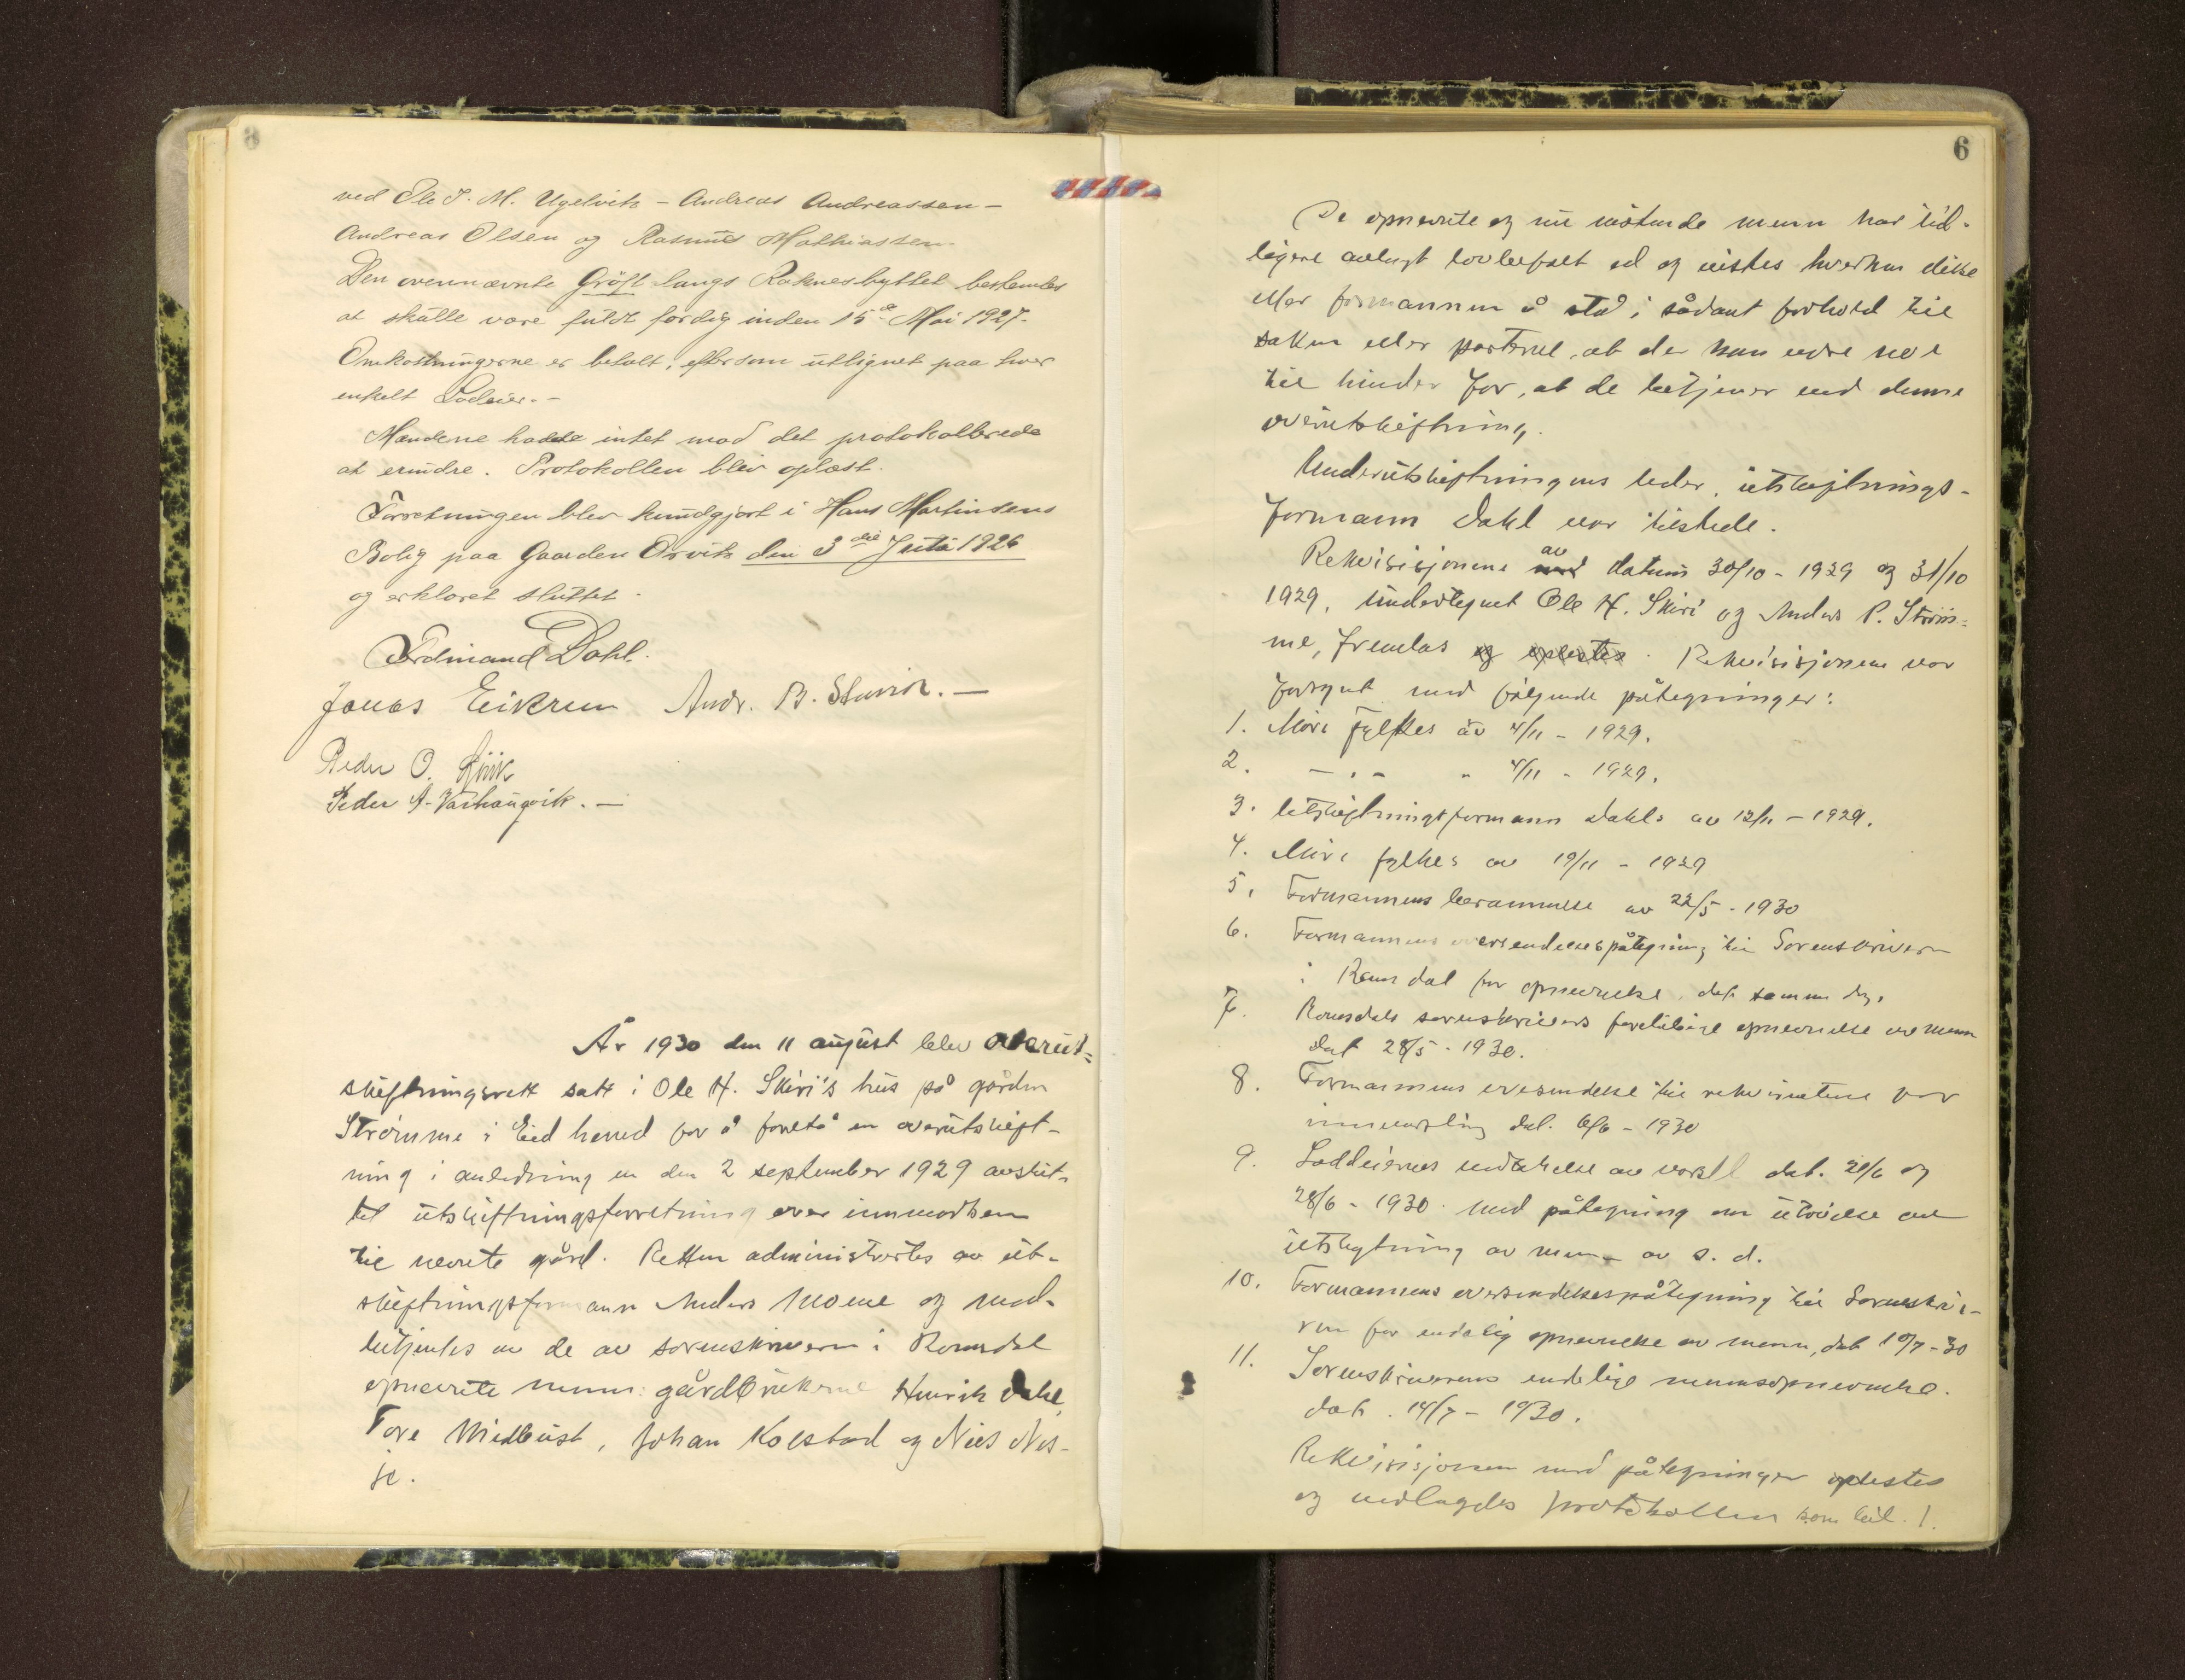 ved Ole J. M. Ugelvik – Andreas Andreassen –
Andreas Olsen og Rasmus Mathiassen.
Den ovennævnte Gröft langs Raknesbyttet bestemtes
at skulle være fuldt færdig inden 15de Mai 1927.
Omkostningerne er betalt, eftersom utlignet paa hver
enkelt Lodeier. –
Mændene hadde intet mod det protokollerede
at erindre. Protokollen blev oplæst.
Forretningen blev kundgjort i Hans Martinsens
Bolig paa Gaarden Orvik den 3die Juli 1926
og erklæret sluttet.
Ferdinand Dahl.
Jonas Eikrem Andr. B. –
Peder O.
Peder A. Varhaugvik. –
År 1930 den 11 august blev overut-
skiftningsrett satt i Ole H. Skiri's hus på gården
Strømme i Eid herred for å foreta en overutskift-
ning i anledning en den 2 september 1929 avslut-
tet utskiftningsforretning over innmarken
til nevnte gård. Retten administrertes av ut-
skiftningsformann Anders Moene og med-
betjentes av de av sorenskriveren i Romsdal
opnevnte menn: gårdbrukerne Henrik Dahl,
Tore Midbust, Johan Kolstad og Nils Nes-
je.
6
De opnevnte og nu møtende menn har tid-
ligere avlagt lovbefalt ed og vistes hverken disse
eller formannen å stå i sådant forhold til
saken eller partene, at det kan være noe
til hinder for, at de betjener ved denne
overutskiftning.
Underutskiftningens leder, utskiftnings-
formann Dahl var tilstede.
Rekvisisjonene av datum 30/10 - 1929 og 31/10
1929, undertegnet Ole H. Skiri og Anders P. Strøm-
me, fremlas og oplestes. Rekvisisjonene var
forsynt med følgende påtegninger:
1. Møre fylkes av 4/11 - 1929.
2. – " – " 4/11 - 1929.
3. Utskiftningsformann Dahls av 12/11 - 1929.
4. Møre fylkes av 19/11 - 1929
5. Formannens berammelse av 22/5 - 1930
6. Formannens oversendelsespåtegning til Sorenskriveren
i Romsdal for opnevnelse, dat. samme dag.
7. Romsdals sorenskrivers foreløbige opnevnelse av menn
dat 28/5 - 1930.
8. Formannens oversendelse til rekvirentene for
innvarsling dat. 6/6 - 1930
9. Loddeiernes vedtakelse av varsel dat. 21/6 og
28/6 - 1930. med påtegning om utøvelse av
utskytning av menn av s. d.
10. Formannens oversendelsespåtegning til Sorenskri-
veren for endelig opnevnelse av menn, dat 10/7 - 30
11. Sorenskriverens endelige mennsopnevnelse.
dat. 14/7 - 1930.
Rekvisisjonen med påtegninger oplestes
og vedlagdes protokollen som bil. 1.